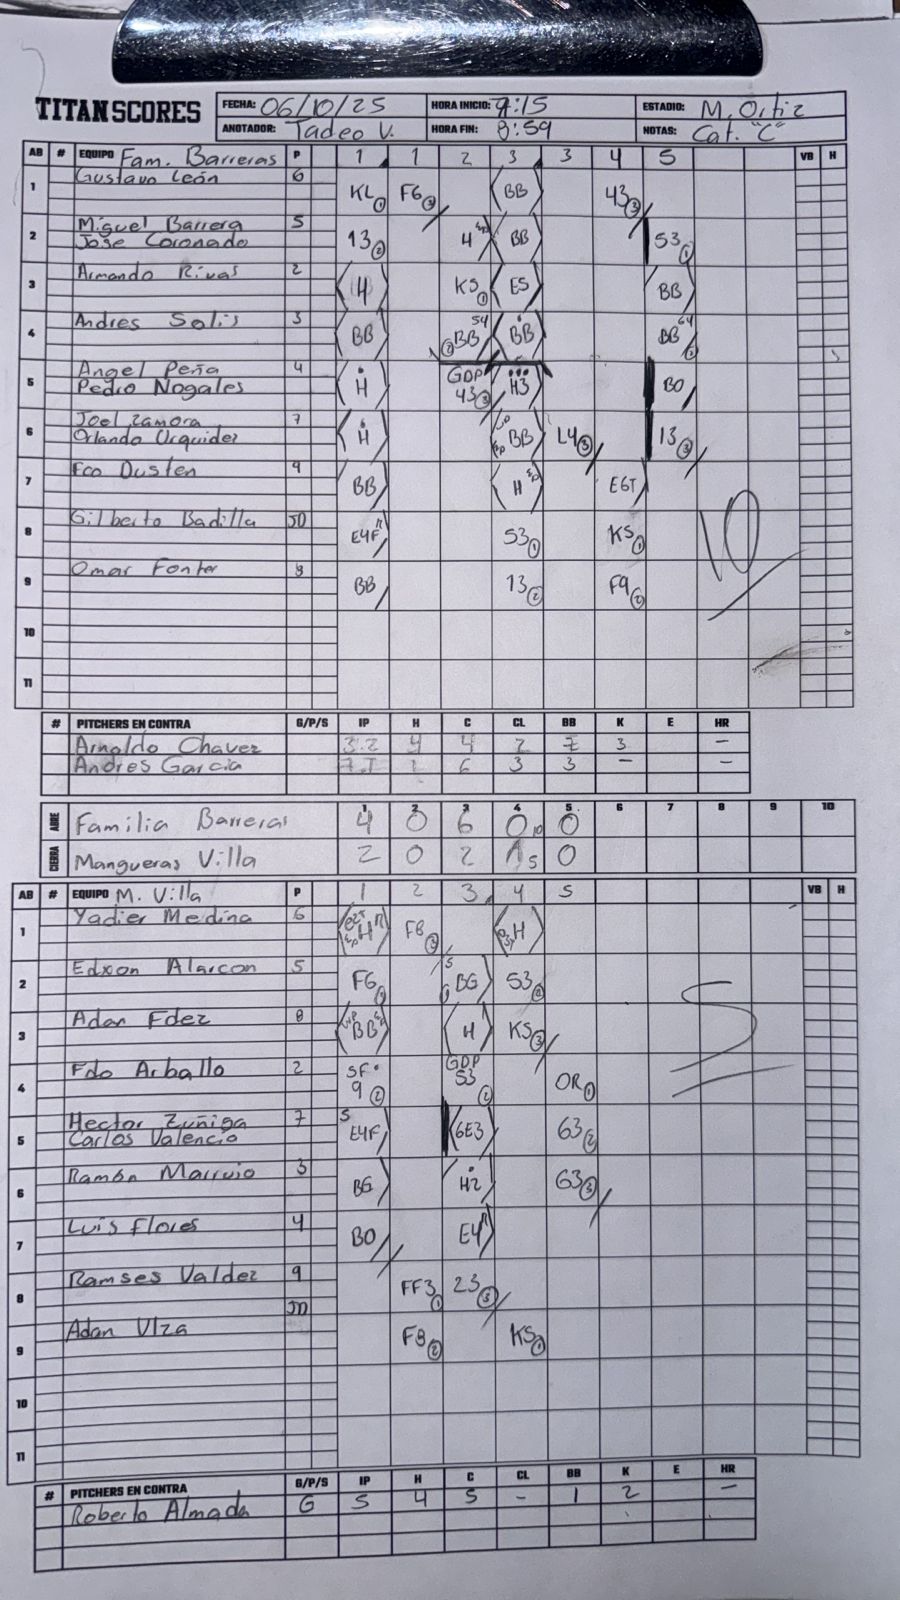 TITAN SCORES
FECHA: 06/10/25 HORA INICIO: 7:15 ESTADIO: M. Ortiz
ANOTADOR: Tadeo V. HORA FIN: 8:59 NOTAS: Cat. "C"
AB # EQUIPO Fam. Barreras P 1 1 2 3 3 4 5 VB H
1 Gustavo León 6 KL① F6③ BB 43③
2 Miguel Barrera 5 13② 4 BB 53①
Jose Coronado
3 Armando Rivas 2 H KS① ES BB
4 Andres Solis 3 BB ②BB 54 BB BB 64
5 Angel Peña 4 H GDP 43③ H3 BO
Pedro Nogales
6 Joel Zamora 7 H BB L4③ 13③
Orlando Urquidez
7 Fco Dusten 9 BB H E6T
8 Gilberto Badilla JD E4F 53① KS①
9 Omar Fonter 8 BB 13② F9②
10
11
10
# PITCHERS EN CONTRA G/P/S IP H C CL BB K E HR
Arnoldo Chavez 3.2 4 4 2 7 3 -
Andres Garcia 6 3 3 - -
1 2 3 4 5 6 7 8 9 10
ABRE Familia Barreras 4 0 6 0 10 0
CIERRA Mangueras Villa 2 0 2 1 5 0
AB # EQUIPO M. Villa P 1 2 3 4 5 VB H
1 Yadier Medina 6 H F8③ H
2 Edxon Alarcon 5 F6① BG 53②
3 Adan Fdez 8 BB H KS③
4 Fdo Arballo 2 SF 9② GDP 53② OR①
5 Hector Zuñiga 7 S E4F 6E3 63②
Carlos Valencia
6 Ramón Marrujo 3 BG H2 63③
7 Luis Flores 4 BO E4
8 Ramses Valdez 9 FF3① 23③
JD
9 Adan Vlza F8② KS①
10
11
5
# PITCHERS EN CONTRA G/P/S IP H C CL BB K E HR
Roberto Almada G 5 4 5 - 1 2 -